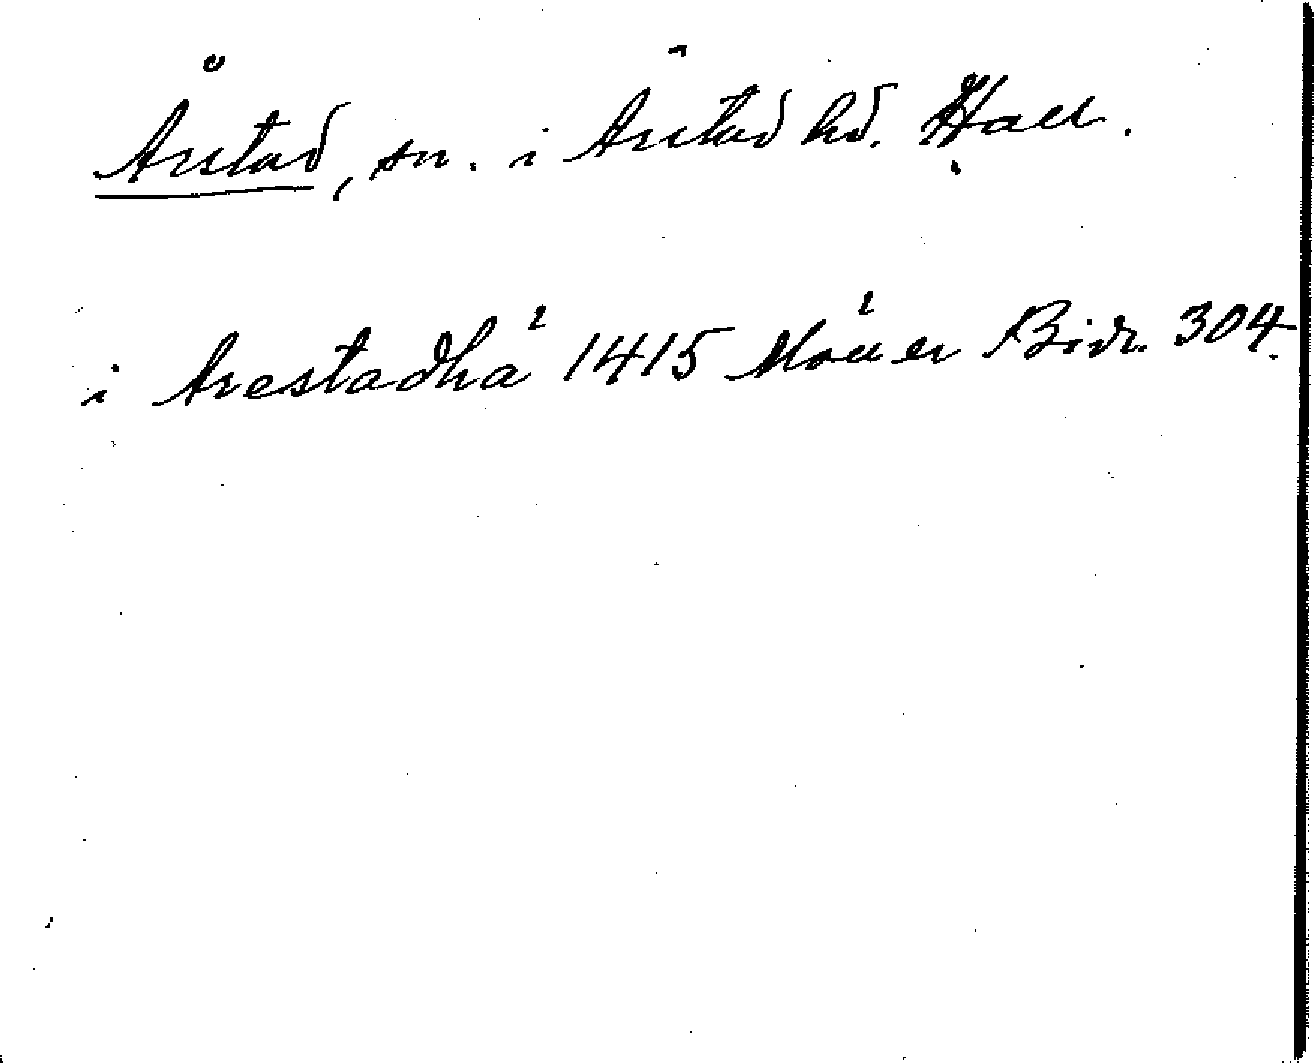 Årstad, sn. i Årstad hd. Hall.
i Arestadha 1415 Möller Bidr. 304.